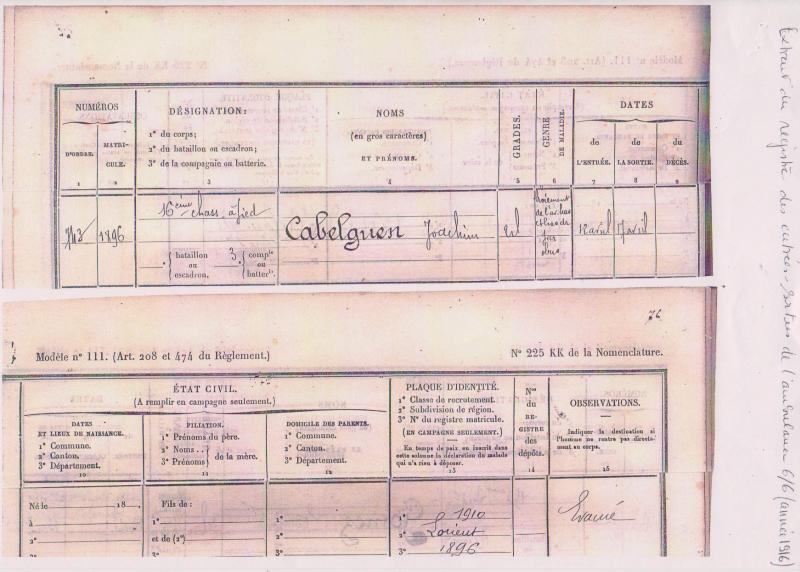 NUMÉROS
D'ORDRE.
MATRI-
CULE.
DÉSIGNATION:
1° du corps;
2° du bataillon ou escadron;
3° de la compagnie ou batterie.
NOMS
(en gros caractères)
ET PRÉNOMS.
GRADES.
GENRE
DE MALADIE.
DATES
de
L'ENTRÉE.
de
LA SORTIE.
du
DÉCÈS.
1 2 3 4 5 6 7 8 9
1896
16ème chass. à pied
bataillon
ou
escadron.
3 comp^ie
ou
batter^ie.
Cabelguen Joachim
1 avril
Modèle n° 111. (Art. 208 et 474 du Règlement.)
76
N° 225 KK de la Nomenclature.
ÉTAT CIVIL.
(A remplir en campagne seulement.)
DATES
ET LIEUX DE NAISSANCE.
1° Commune.
2° Canton.
3° Département.
10
FILIATION.
1° Prénoms du père.
2° Noms . . }
3° Prénoms } de la mère.
11
DOMICILE DES PARENTS.
1° Commune.
2° Canton.
3° Département.
12
PLAQUE D'IDENTITÉ.
1° Classe de recrutement.
2° Subdivision de région.
3° N° du registre matricule.
(EN CAMPAGNE SEULEMENT.)
En temps de paix on inscrit dans
cette colonne la déclaration du malade
qui n'a rien à déposer.
13
N^os
du
RE-
GISTRE
des
dépôts.
14
OBSERVATIONS.
Indiquer la destination si
l'homme ne rentre pas directe-
ment au corps.
15
Né le 18 .
à
2°
3°
Fils de :
1°
et de (2°)
3°
1°
2°
3°
1° 1910
2° Lorient
3° 1896
Evacué
Extrait du registre des entrées-sorties de l'ambulance 6/6 (année 1916)